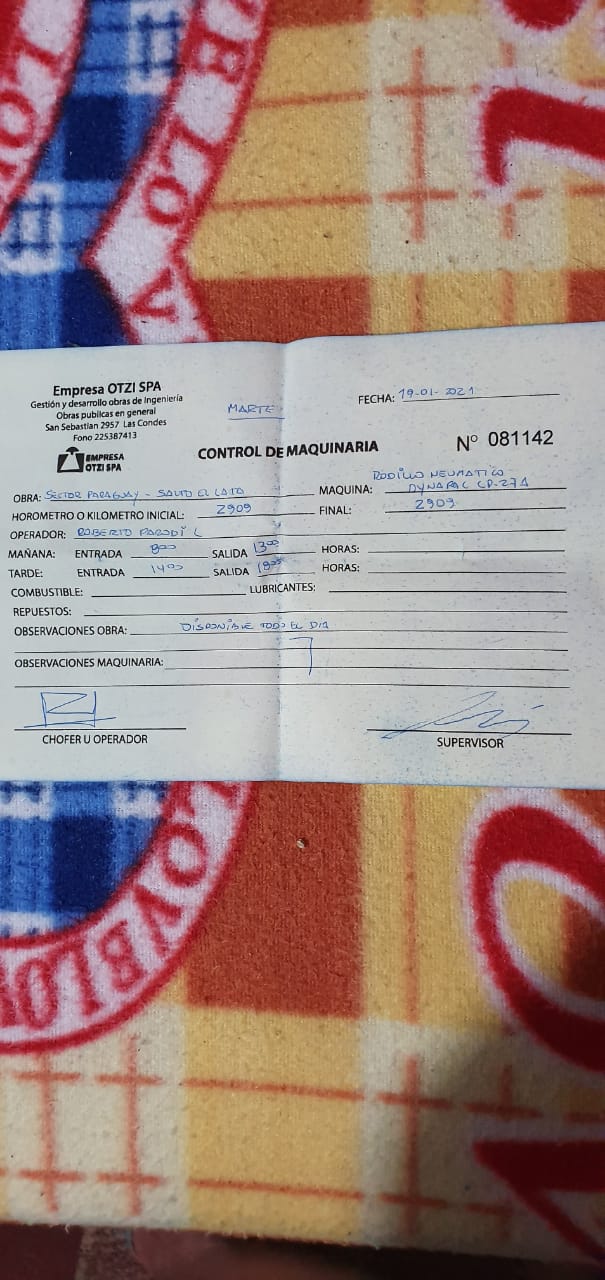 Empresa OTZI SPA
Gestión y desarrollo obras de Ingeniería
Obras publicas en general
San Sebastian 2957 Las Condes
Fono 225387413
EMPRESA
OTZI SPA
MARTE
FECHA: 19-01-2021
CONTROL DE MAQUINARIA
Nº 081142
OBRA: SECTOR PARAGUAY - SALTO EL LAJA
MAQUINA: RODILLO NEUMATICO
DYNAPAC CP-271
HOROMETRO O KILOMETRO INICIAL: 2909
FINAL: 2909
OPERADOR: ROBERTO PARODI L
MAÑANA: ENTRADA 800 SALIDA 1300 HORAS:
TARDE: ENTRADA 1400 SALIDA 1800 HORAS:
COMBUSTIBLE: LUBRICANTES:
REPUESTOS:
OBSERVACIONES OBRA: DISPONIBLE TODO EL DIA
OBSERVACIONES MAQUINARIA:
CHOFER U OPERADOR
SUPERVISOR
LOVE LOV
LOVELOV